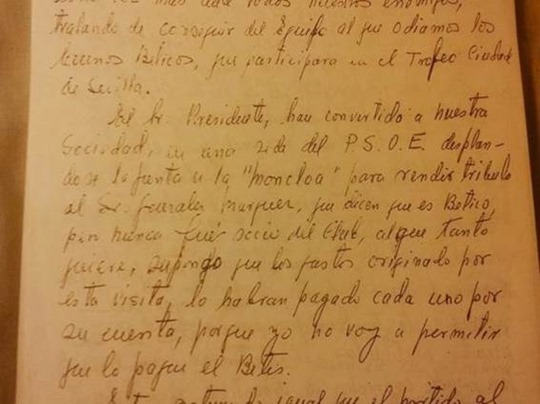 más ante todos nuestros enemigos,
tratando de conseguir del Equipo al que odiamos los
buenos Beticos, que participara en el Trofeo Ciudad
de Sevilla.
El Sr. Presidente, han convertido a nuestra
Sociedad, en una sede del P.S.O.E. desplan-
dose la junta a la "moncloa" para rendir tributo
al Sr. Gonzalez Marquez, que dicen que es Betico,
pero nunca fué socio del Club, al que tanto
quiere, supongo que los gastos originado por
esta visita, lo habran pagado cada uno por
su cuenta, porque yo no voy a permitir
que lo pague el Betis.
igual que el partido al